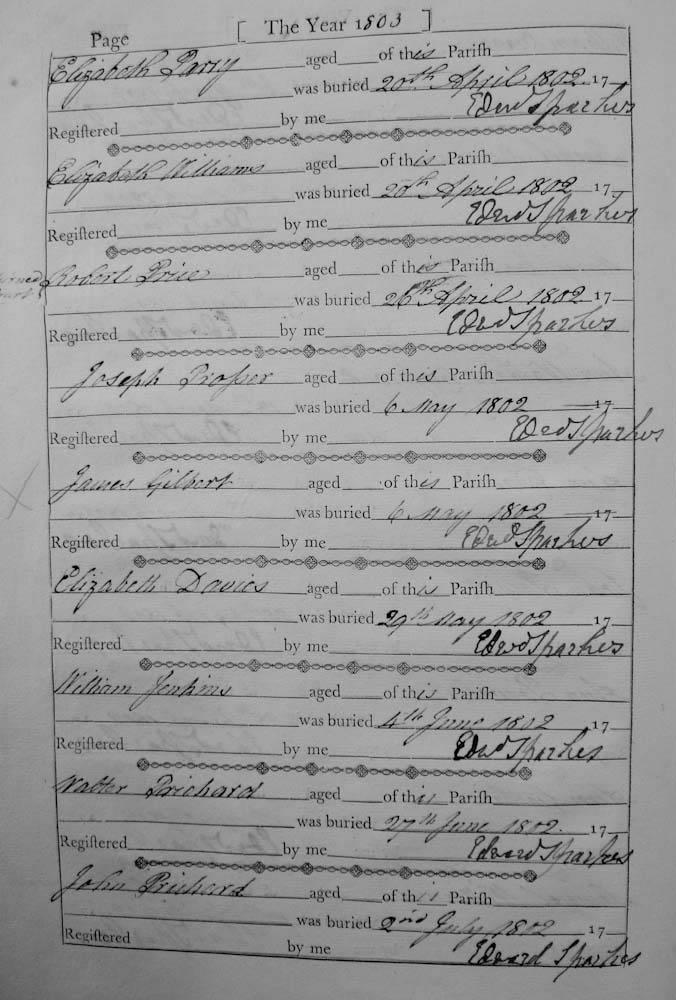 Page [ The Year 1803 ]
Elizabeth Parry aged of this Pariſh
was buried 20th April 1802 17
Regiſtered by me Edwd Sparkes
Elizabeth Williams aged of this Pariſh
was buried 20th April 1802 17
Regiſtered by me Edwd Sparkes
Robert Price aged of this Pariſh
was buried 26th April 1802 17
Regiſtered by me Edwd Sparkes
Joseph Prosser aged of this Pariſh
was buried 6 May 1802 17
Regiſtered by me Edwd Sparkes
James Gilbert aged of this Pariſh
was buried 6 May 1802 17
Regiſtered by me Edwd Sparkes
Elizabeth Davies aged of this Pariſh
was buried 29th May 1802 17
Regiſtered by me Edwd Sparkes
William Jenkins aged of this Pariſh
was buried 4th June 1802 17
Regiſtered by me Edwd Sparkes
Walter Prichard aged of this Pariſh
was buried 27th June 1802 17
Regiſtered by me Edward Sparkes
John Prichard aged of this Pariſh
was buried 2nd July 1802 17
Regiſtered by me Edward Sparkes